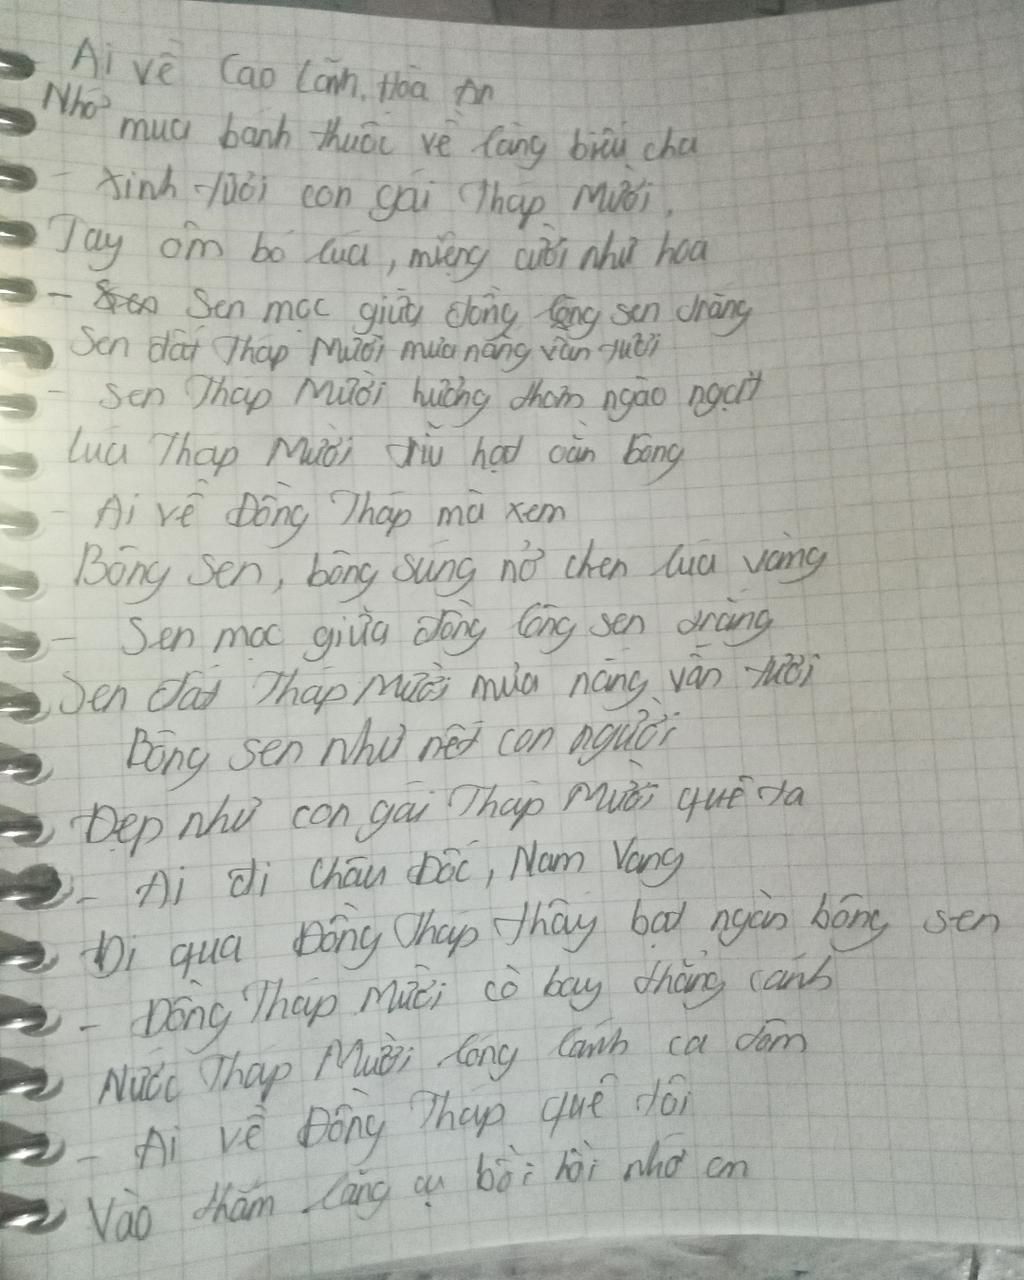 Ai về Cao Lãnh, Hòa An
Nhớ mua bánh thuốc về làng biếu cha
- Xinh tươi con gái Tháp Mười,
Tay ôm bó lúa, miệng cười như hoa
- Sen mọc giữa đồng lộng sen trắng
Sen đất Tháp Mười mưa nắng vẫn tươi
- Sen Tháp Mười hương thơm ngào ngạt
Lúa Tháp Mười trĩu hạt oằn bông
- Ai về Đồng Tháp mà xem
Bông sen, bông súng nở chen lúa vàng
- Sen mọc giữa đồng lòng sen trắng
Sen đất Tháp Mười mưa nắng vẫn tươi
Bông sen như nết con người
Đẹp như con gái Tháp Mười quê ta
- Ai đi Châu Đốc, Nam Vang
Đi qua Đồng Tháp thấy bạt ngàn bông sen
- Đồng Tháp Mười cò bay thẳng cánh
Nước Tháp Mười lóng lánh cá tôm
- Ai về Đồng Tháp quê tôi
Vào thăm lăng cụ bồi hồi nhớ ơn